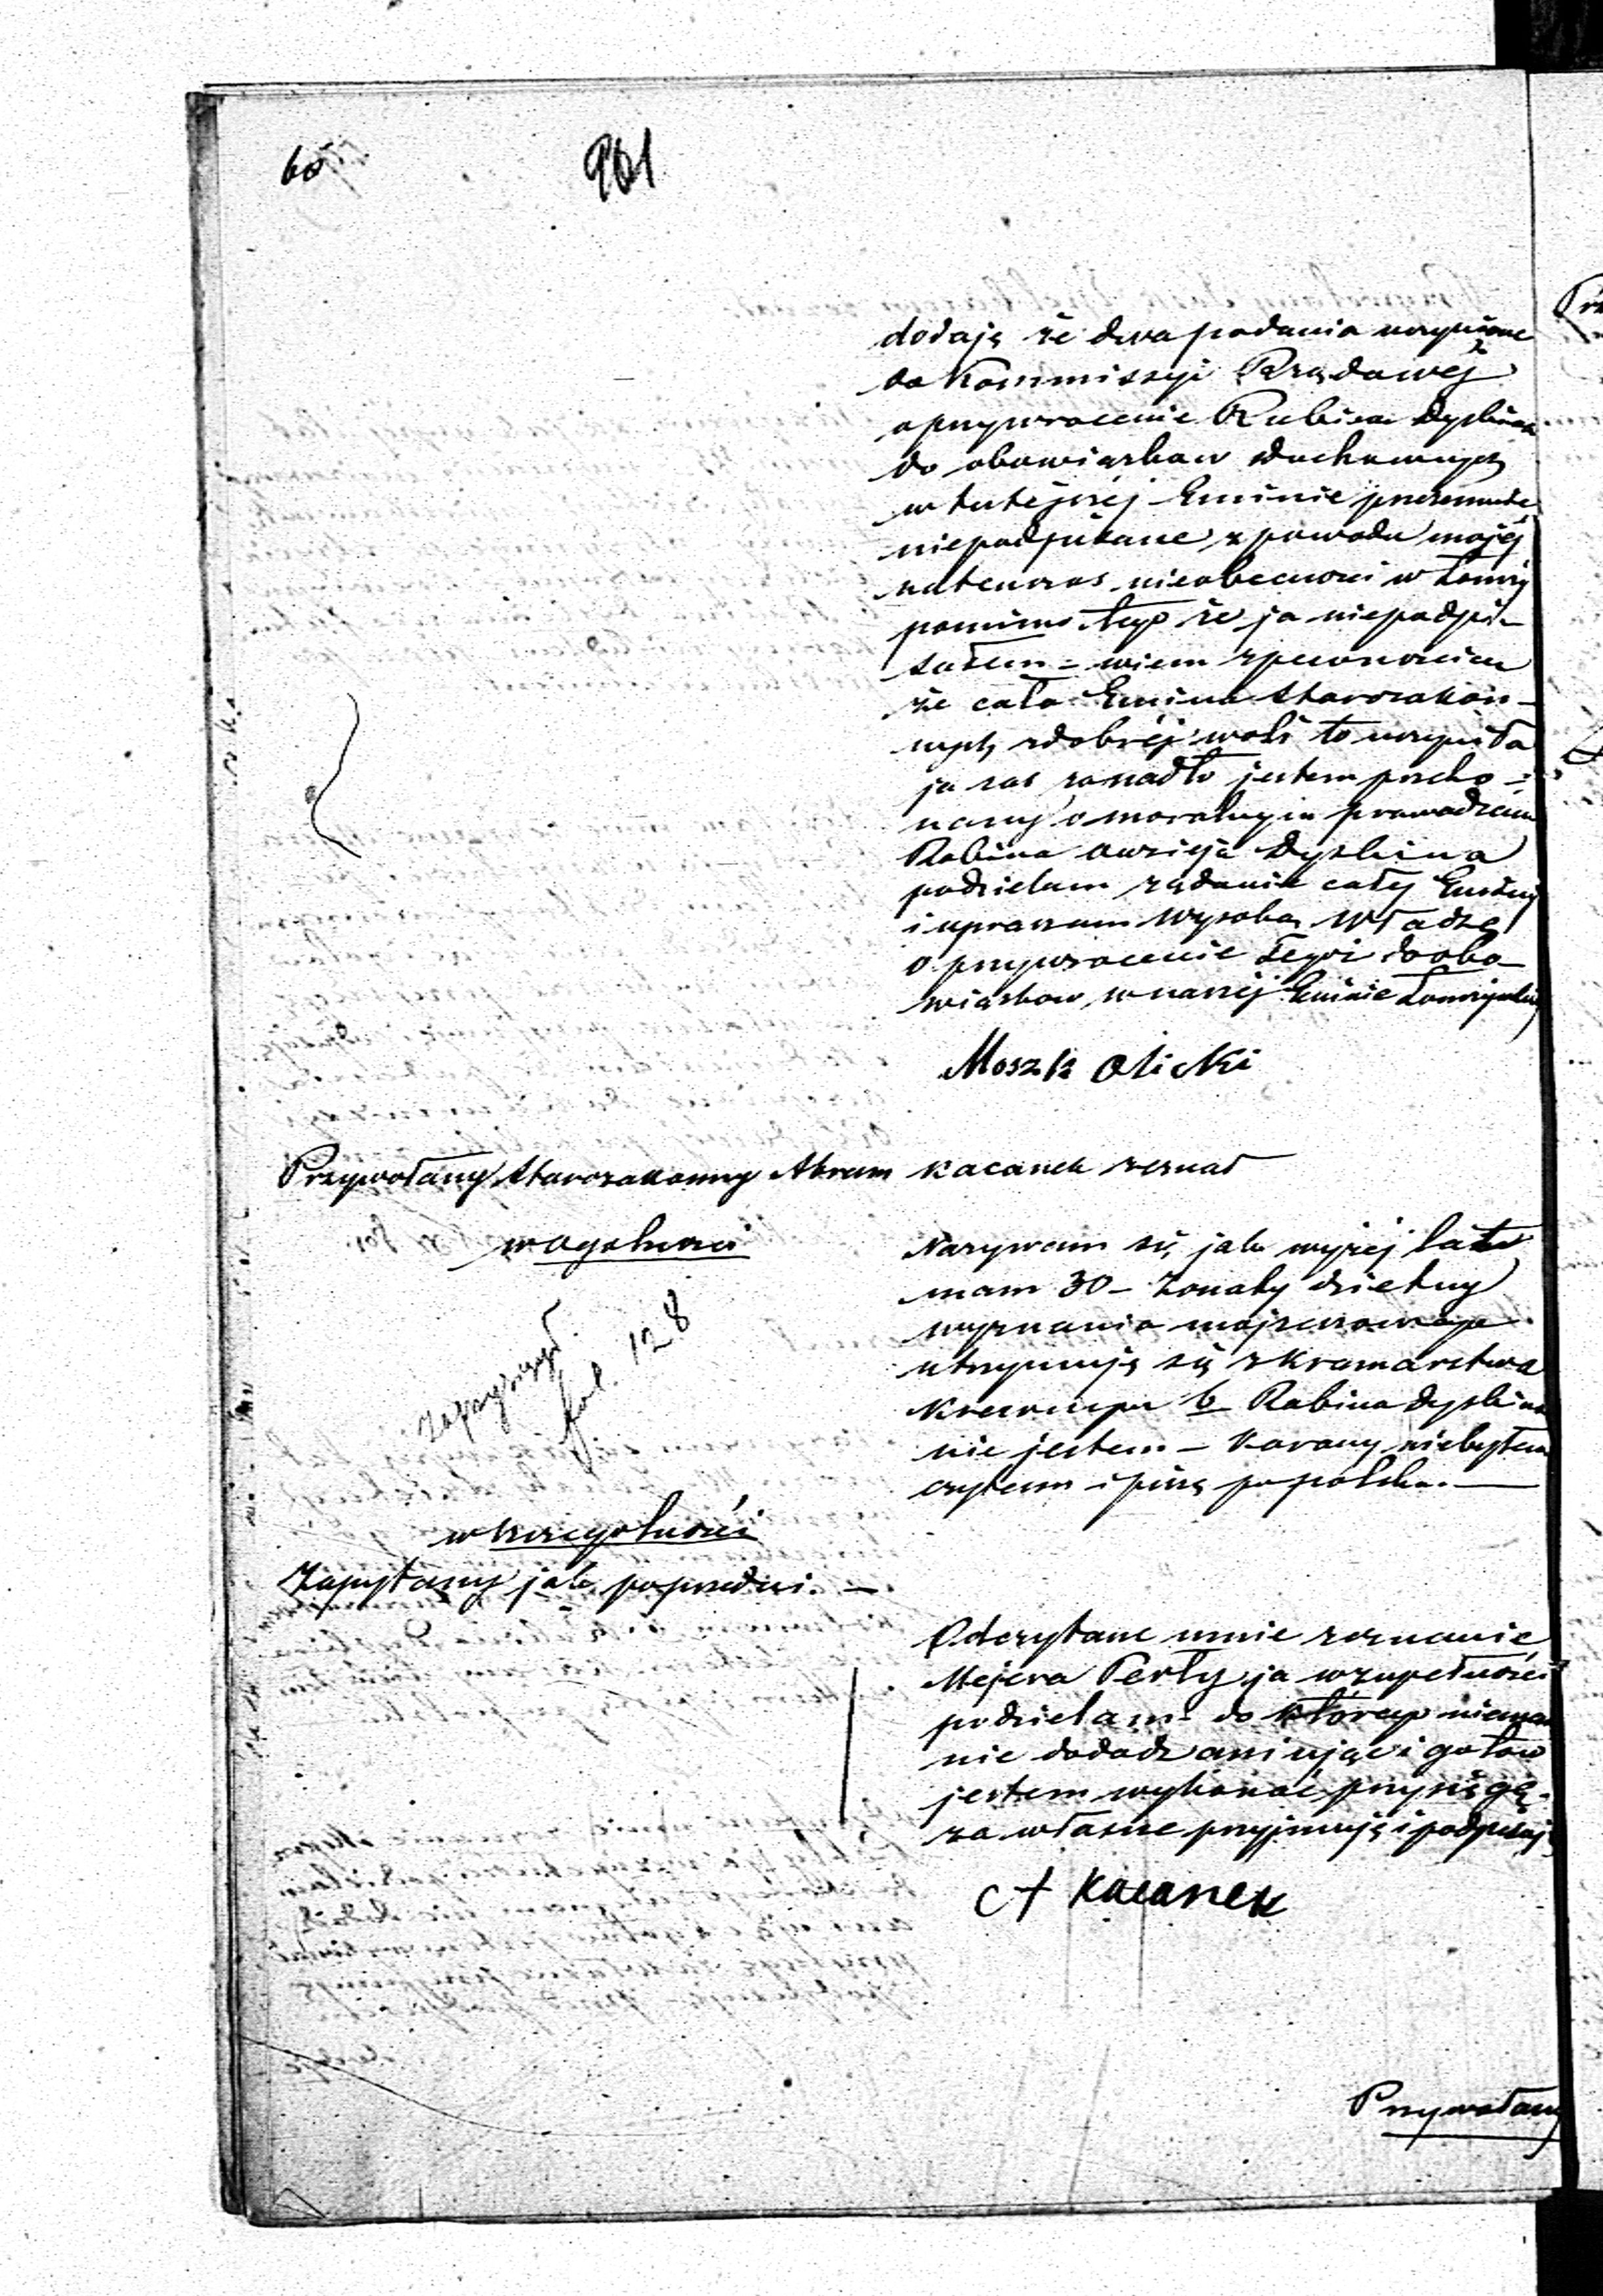 60
961
dodaję że dwa podania uczynione
do Kommissyi Rządowéj
o przywrocenie Rubina Dyskina
do obowiązkow duchownych
w tutéjszéj Gminie przezemnie
niepodpisane z powodu mojéj
natenczas nieobecności w Łomży
pomimo tego że ja niepodpi-
sałem - wiem z pewnością
że cała Gmina Starozakon-
nych z dobréj woli to uczyniła
ja zas zanadto jestem przeko-
nany o moralnym prowadzeniu
Rabina Dyskina
podzielam żądanie całej Gminy
i upraszam wysoką Władzę
o przywrocenie Tegoż do obo-
wiązkow w naszéj Gminie Łomżyńskiej
Moszk Olicki
Przywołany Starozakonny Abram Kacanek zeznał
w ogolności
Nazywam się jak wyżéj lat
mam 30 - Żonaty dzietny
wyznania mojżeszowego
utrzymuję się z kramarstwa
Krewnym b Rabina Dyskina
nie jestem - Karany niebyłem
czytam i piszę po polsku. -
zaprzysiągł
fol. 128
w szczegolności
Zapytany jak poprzedni. -
Odczytane mnie zeznanie
Mejera Perły ja w zupełności
podzielam do którego niemam
nic dodadz ani ująć i gotow
jestem wykonać przysięgę -
za własne przyjmuję i podpisuję
A Kacanek
Przywołany